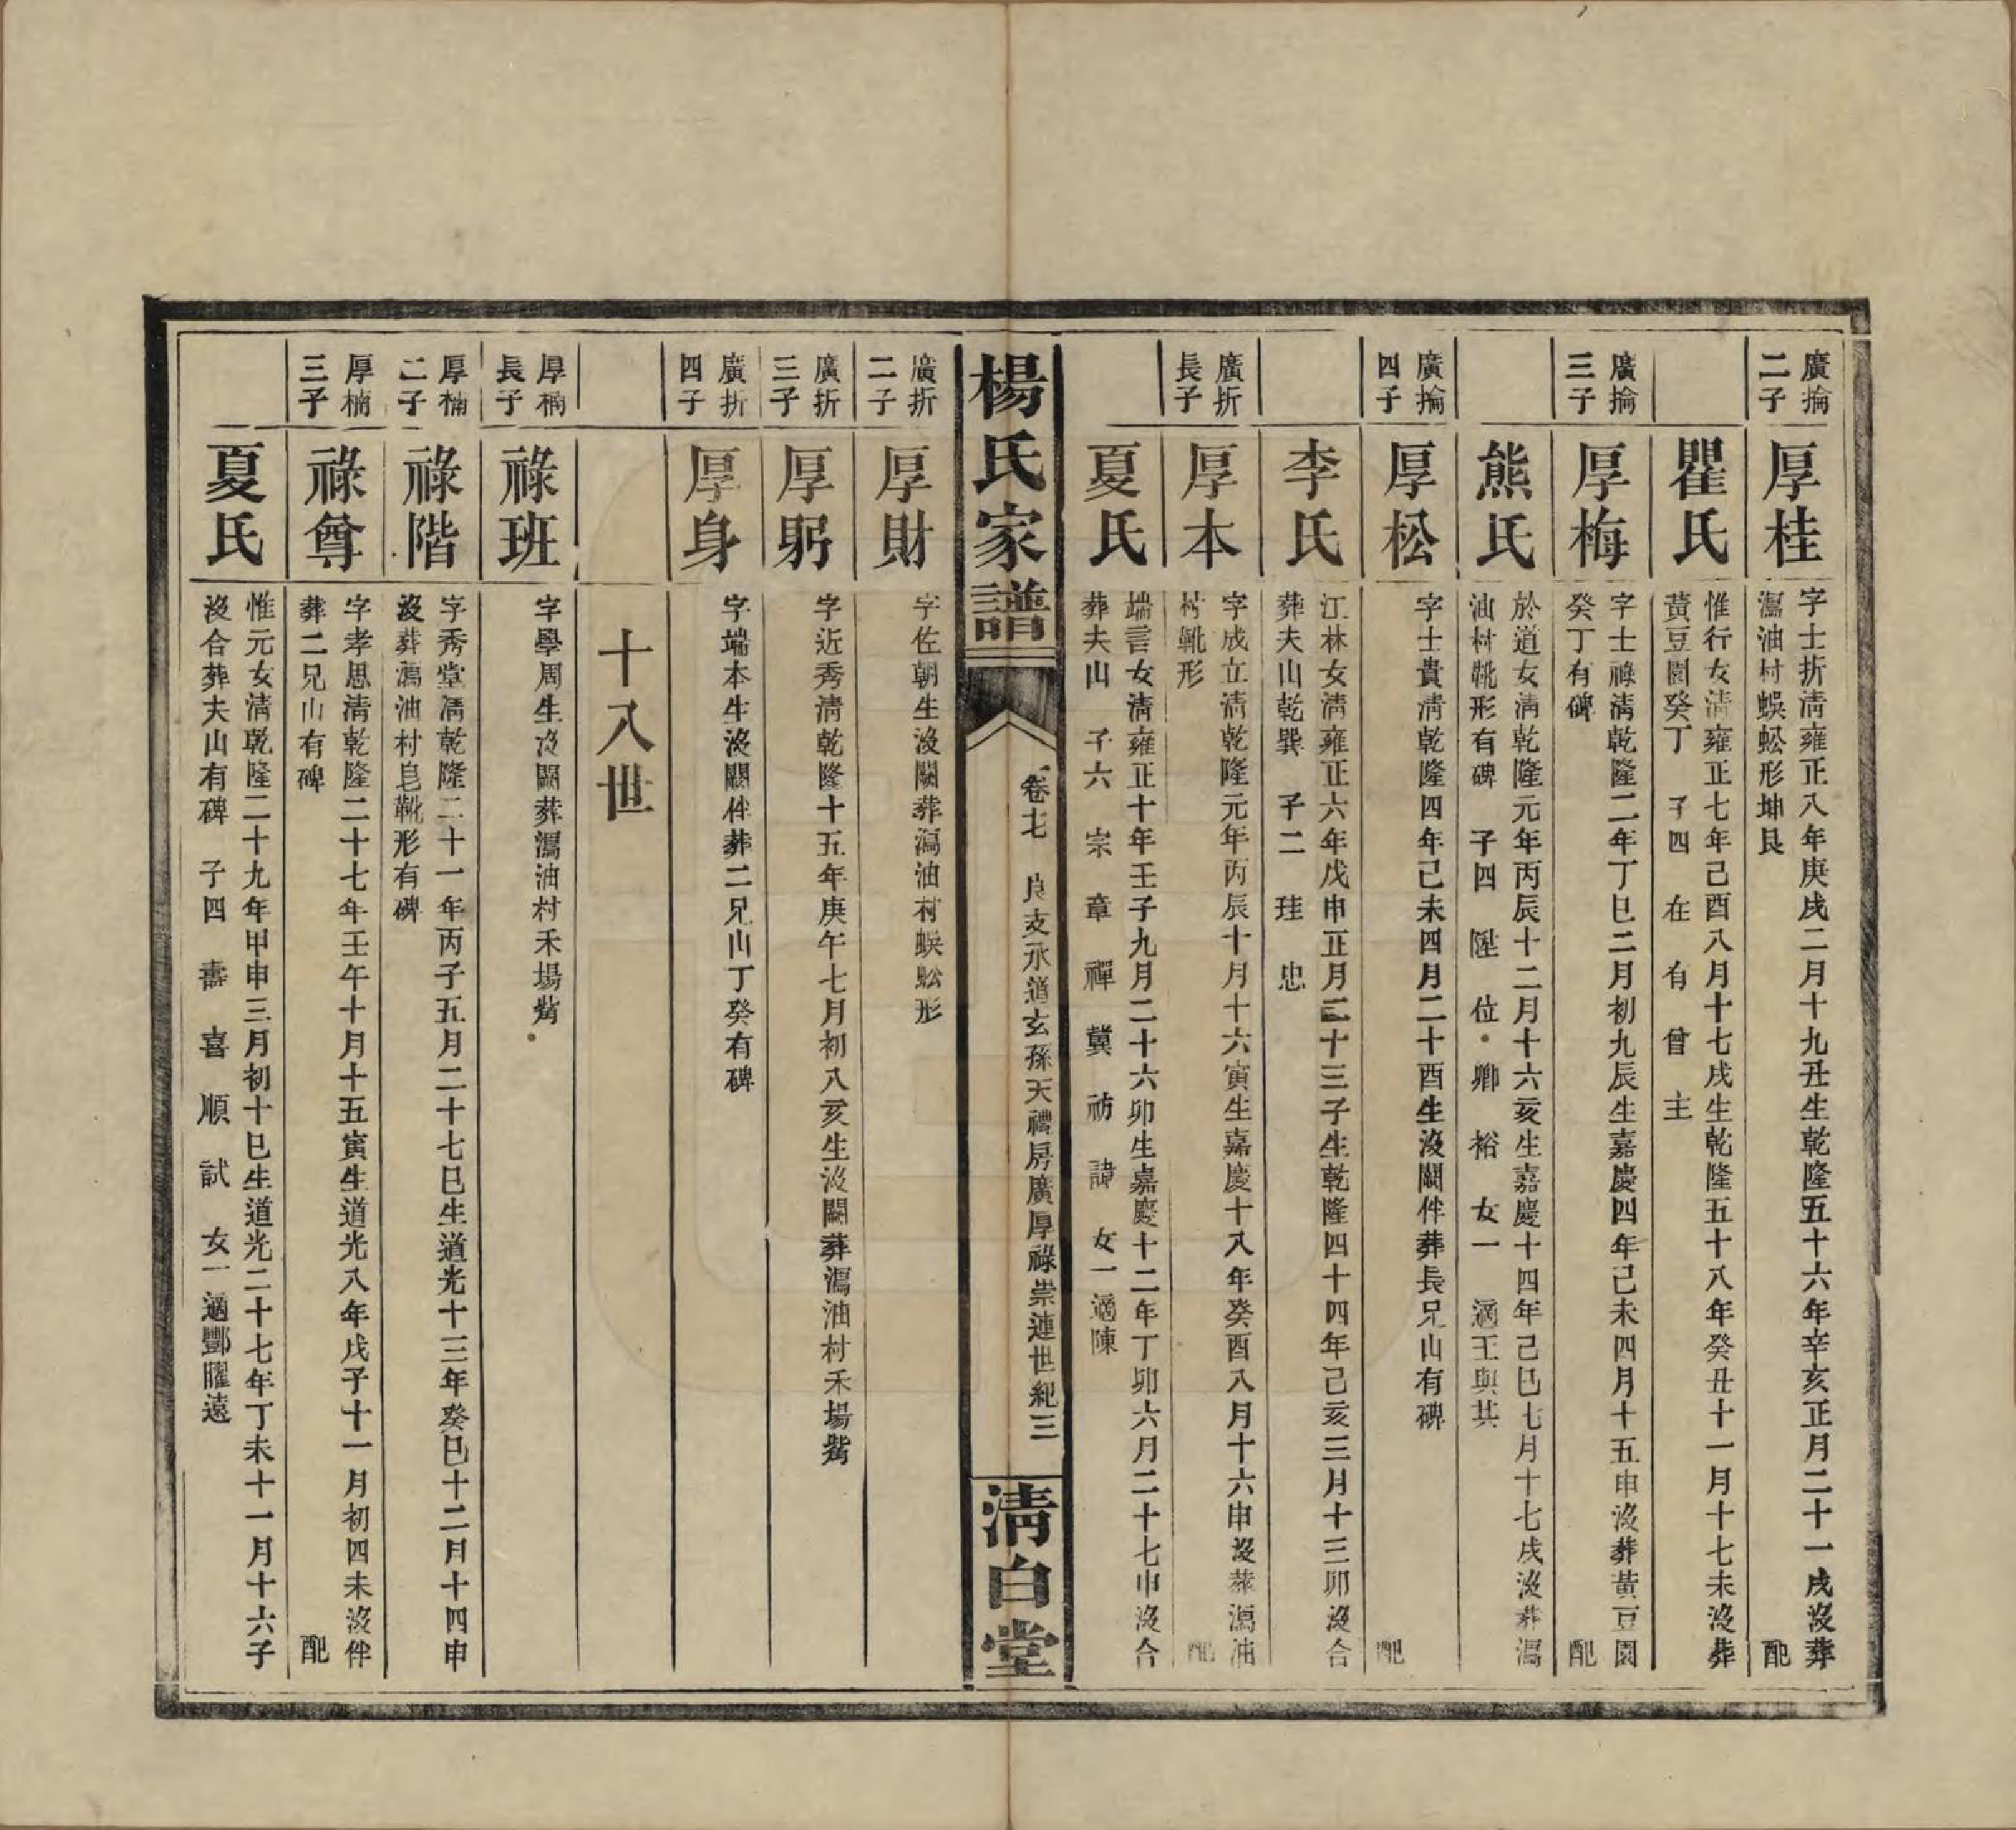 廣掄
二子
厚桂
字士折淸雍正八年庚戌二月十九丑生乾隆五十六年辛亥正月二十一戌沒葬
瀉油村蜈蚣形坤艮
配
瞿氏
惟行女淸雍正七年己酉八月十七戌生乾隆五十八年癸丑十一月十七未沒葬
黃豆園癸丁 子四 在 有 曾 主
廣掄
三子
厚梅
字士祿淸乾隆二年丁巳二月初九辰生嘉慶四年己未四月十五申沒葬黃豆園
癸丁有碑
配
熊氏
於道女淸乾隆元年丙辰十二月十六亥生嘉慶十四年己巳七月十七戌沒葬瀉
油村靴形有碑 子四 陞 位 卿 裕 女一 適王與其
廣掄
四子
厚松
字士貴淸乾隆四年己未四月二十酉生沒闕伴葬長兄山有碑
配
李氏
江林女淸雍正六年戊申正月二十三子生乾隆四十四年己亥三月十三卯沒合
葬夫山乾巽 子二 珪 忠
廣折
長子
厚本
字成立淸乾隆元年丙辰十月十六寅生嘉慶十八年癸酉八月十六申沒葬瀉油
村靴形
配
夏氏
端言女淸雍正十年壬子九月二十六卯生嘉慶十二年丁卯六月二十七申沒合
葬夫山 子六 宗 章 禪 冀 祊 諱 女一適陳
楊氏家譜
卷七 良支永道玄孫天禮房廣厚祿崇連世紀三
淸白堂
廣折
二子
厚財
字佐朝生沒闕葬瀉油村蜈蚣形
廣折
三子
厚躬
字近秀淸乾隆十五年庚午七月初八亥生沒闕葬瀉油村禾場觜
廣折
四子
厚身
字端本生沒闕伴葬二兄山丁癸有碑
十八世
厚楠
長子
祿班
字學周生沒闕葬瀉油村禾場觜
厚楠
二子
祿階
字秀堂淸乾隆二十一年丙子五月二十七巳生道光十三年癸巳十二月十四申
沒葬瀉油村皂靴形有碑
厚楠
三子
祿尊
字孝思淸乾隆二十七年壬午十月十五寅生道光八年戊子十一月初四未沒伴
葬二兄山有碑
配
夏氏
惟元女淸乾隆二十九年甲申三月初十巳生道光二十七年丁未十一月十六子
沒合葬夫山有碑 子四 壽 喜 順 試 女一適酆躍遠